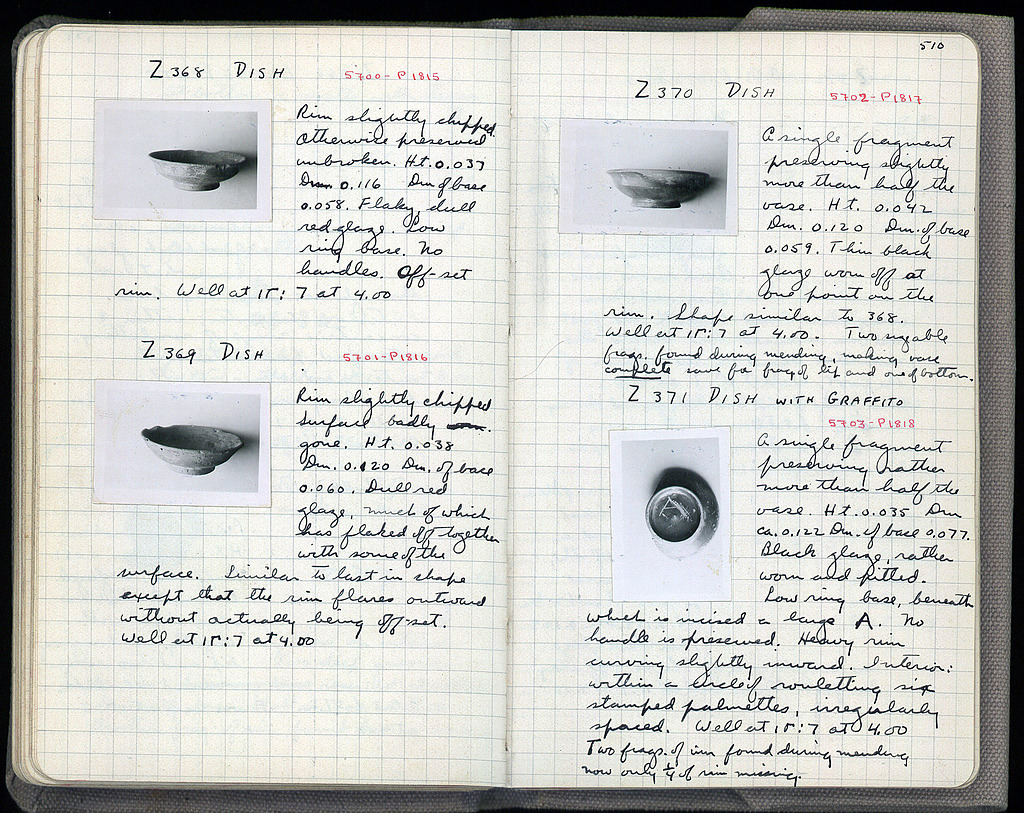 Z 368 DISH 5700-P1815
Rim slightly chipped
otherwise preserved
unbroken. Ht. 0.037
Dm. 0.116 Dm of base
0.058. Flaky, dull
red glaze. Low
ring base. No
handles. Off-set
rim. Well at 1Γ:7 at 4.00
Z 369 DISH 5701-P1816
Rim slightly chipped
surface badly
gone. Ht. 0.038
Dm. 0.120 Dm. of base
0.060. Dull red
glaze, much of which
has flaked off together
with some of the
surface. Similar to last in shape
except that the rim flares outward
without actually being off-set.
Well at 1Γ:7 at 4.00
510
Z 370 DISH 5702-P1817
A single fragment
preserving slightly
more than half the
vase. Ht. 0.042
Dm. 0.120 Dm. of base
0.059. Thin black
glaze worn off at
one point on the
rim. Shape similar to 368.
Well at 1Γ:7 at 4.00. Two sizeable
frags. found during mending, making vase
complete save for frag of lip and one of bottom.
Z 371 DISH WITH GRAFFITO
5703-P1818
A single fragment
preserving rather
more than half the
vase. Ht. 0.035 Dm
ca. 0.122 Dm. of base 0.077.
Black glaze, rather
worn and pitted.
Low ring base, beneath
which is incised a large A. No
handle is preserved. Heavy rim
curving slightly inward. Interior:
within a circle of rouletting six
stamped palmettes, irregularly
spaced. Well at 1Γ:7 at 4.00
Two frags. of rim found during mending
now only ¼ of rim missing.